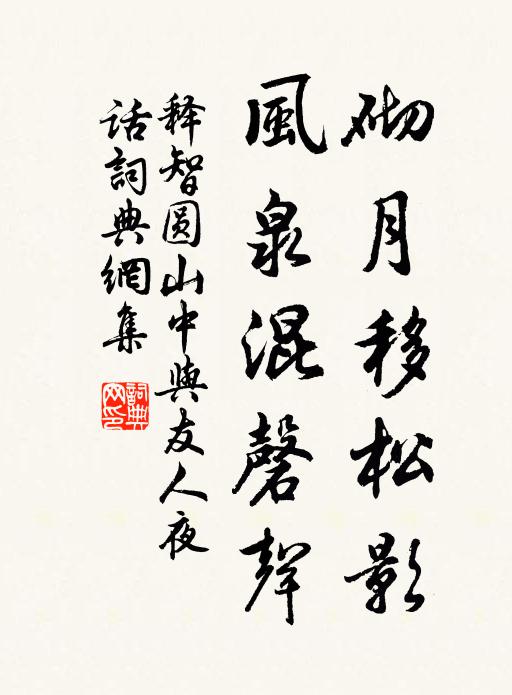 砌月移松影
風泉混磬聲
释智圆山中與友人夜
话詞典網集
詞典
网印